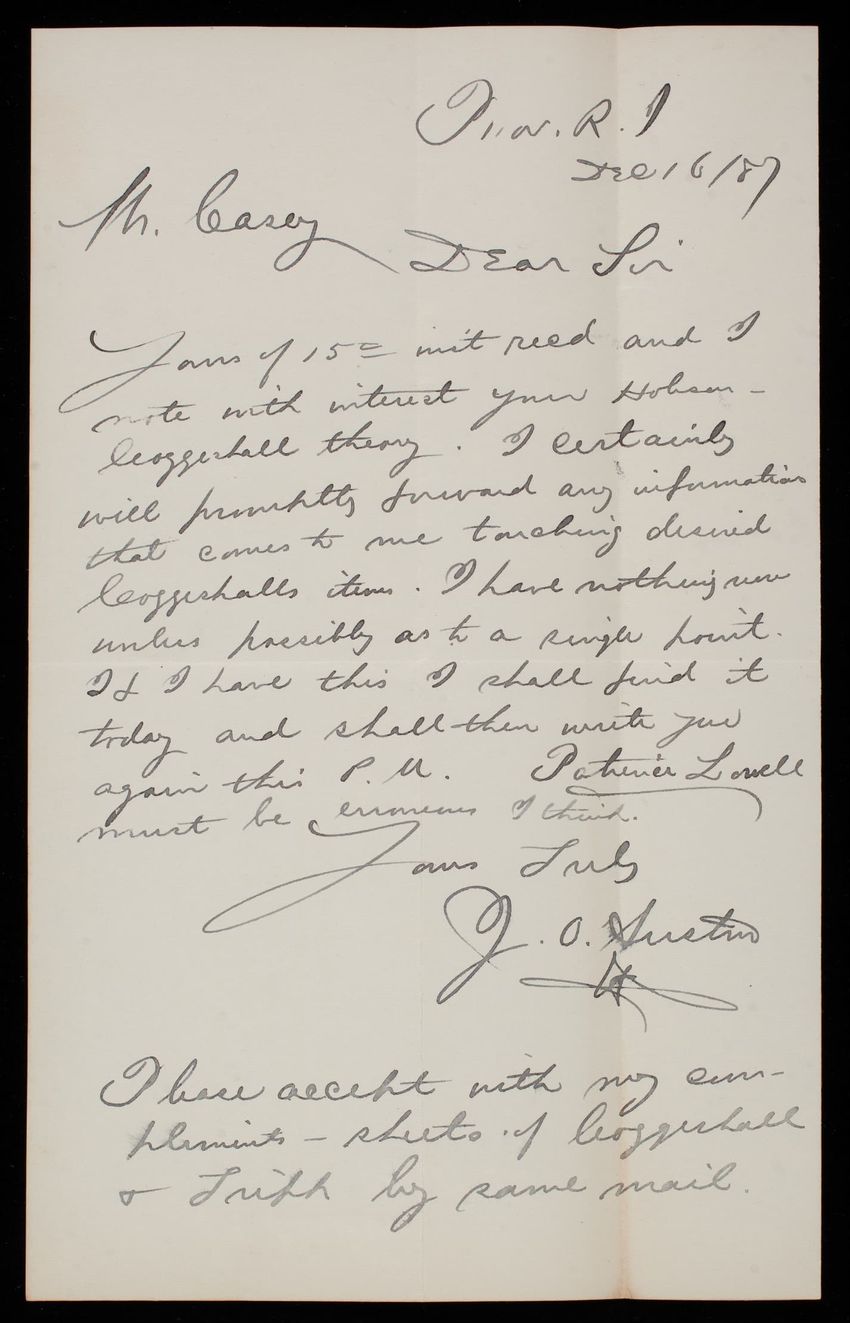 Prov. R. I
Dec 16/87
Mr. Casey
Dear Sir
Yours of 15= inst recd and I
note with interest your Hobson-
Coggeshall theory. I certainly
will promptly forward any information
that comes to me touching desired
Coggeshalls items. I have nothing now
unless possibly as to a single point.
If I have this I shall find it
today and shall then write you
again this P.M. Patience Lowell
must be erroneous I think.
Yours Truly
J. O. Austin
Please accept with my com-
pliments - sheets of Coggeshall
& Tripp by same mail.